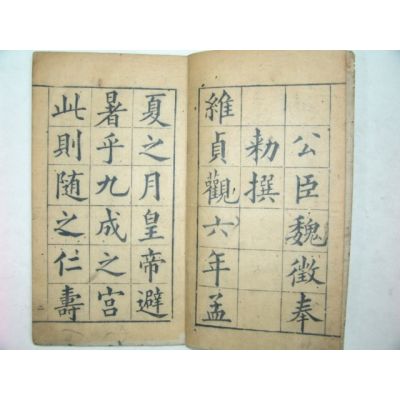 公臣魏徵奉
勑撰
維貞觀六年孟
夏之月皇帝避
暑乎九成之宮
此則随之仁壽